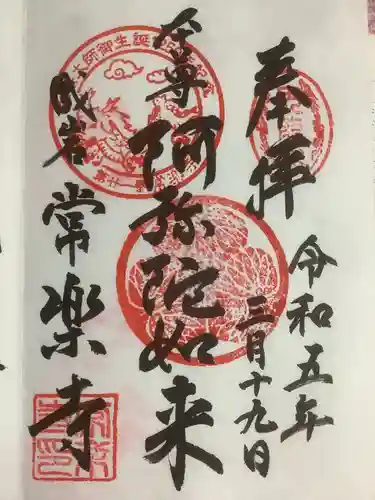 奉拝
令和五年
三月十九日
本尊
阿弥陀如来
成岩
常楽寺